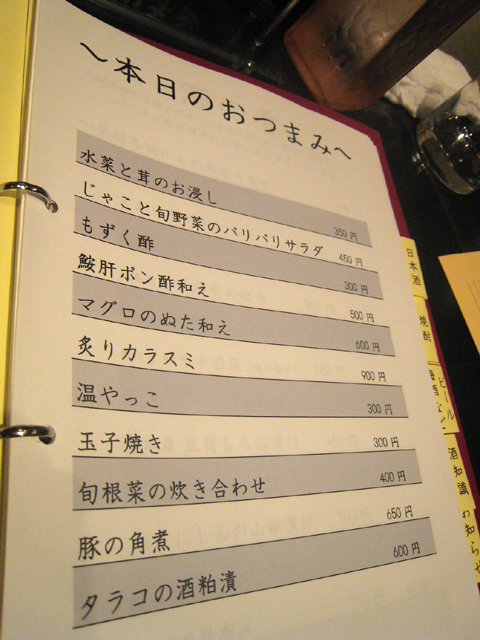 〜本日のおつまみ〜
水菜と茸のお浸し 350円
じゃこと旬野菜のパリパリサラダ 450円
もずく酢 300円
鮟肝ポン酢和え 500円
マグロのぬた和え 600円
炙りカラスミ 900円
温やっこ 300円
玉子焼き 300円
旬根菜の炊き合わせ 400円
豚の角煮 650円
タラコの酒粕漬 600円
日本酒
焼酎
ビール
梅酒など
酒知識
の知らせ